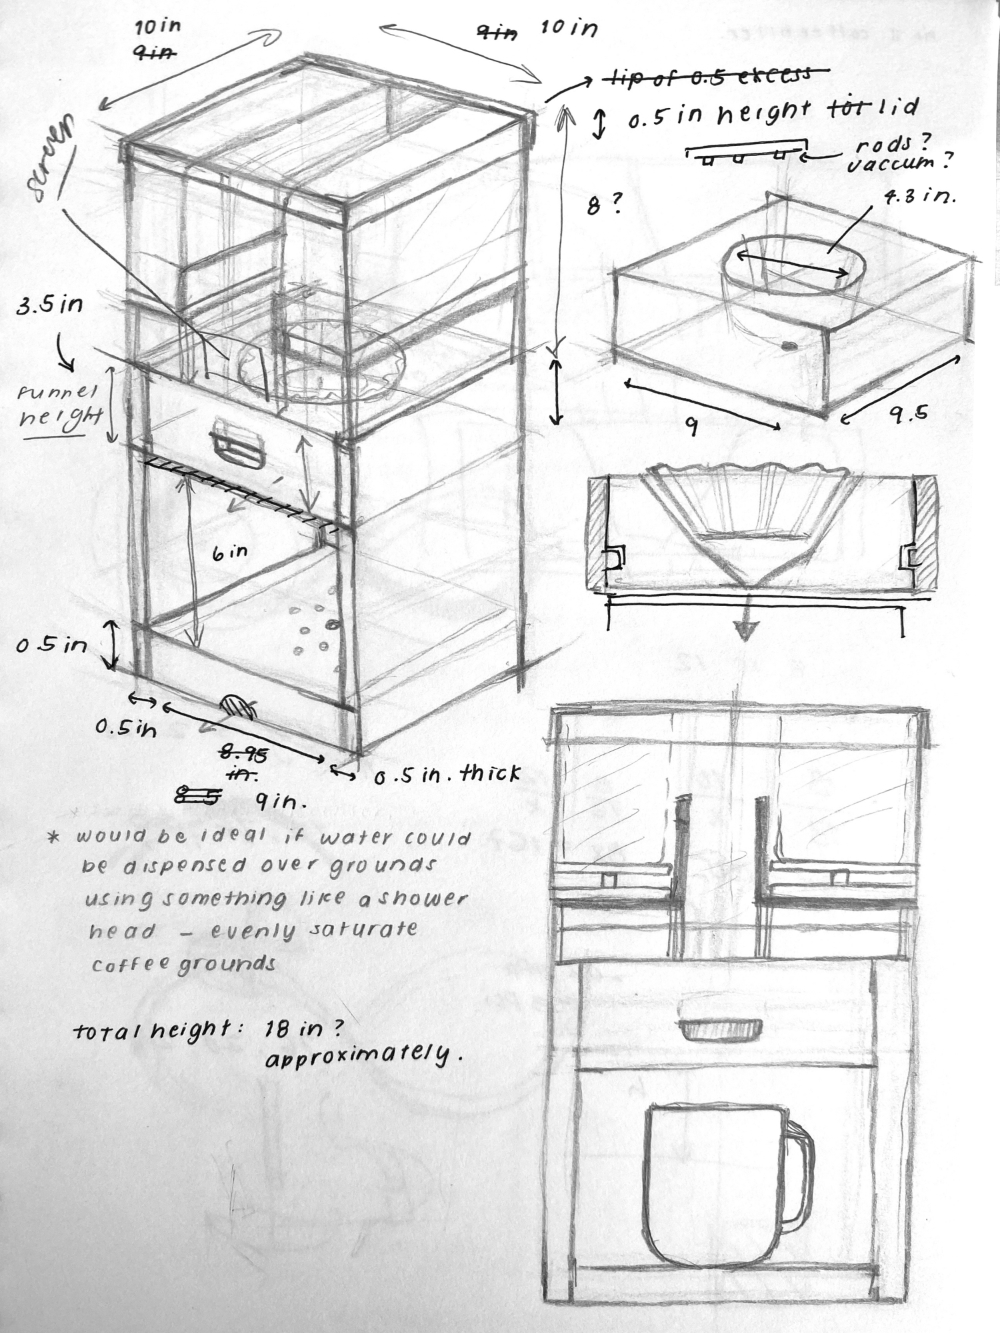 10 in
9in
9in 10 in
lip of 0.5 excess
0.5 in height for lid
rods?
vaccum?
screen
8 ?
4.3 in.
3.5 in
funnel
height
9
9.5
6 in
0.5 in
0.5in
8.95
in.
8.5 9 in.
0.5 in. thick
* would be ideal if water could
be dispensed over grounds
using something like a shower
head - evenly saturate
coffee grounds
total height: 18 in ?
approximately.